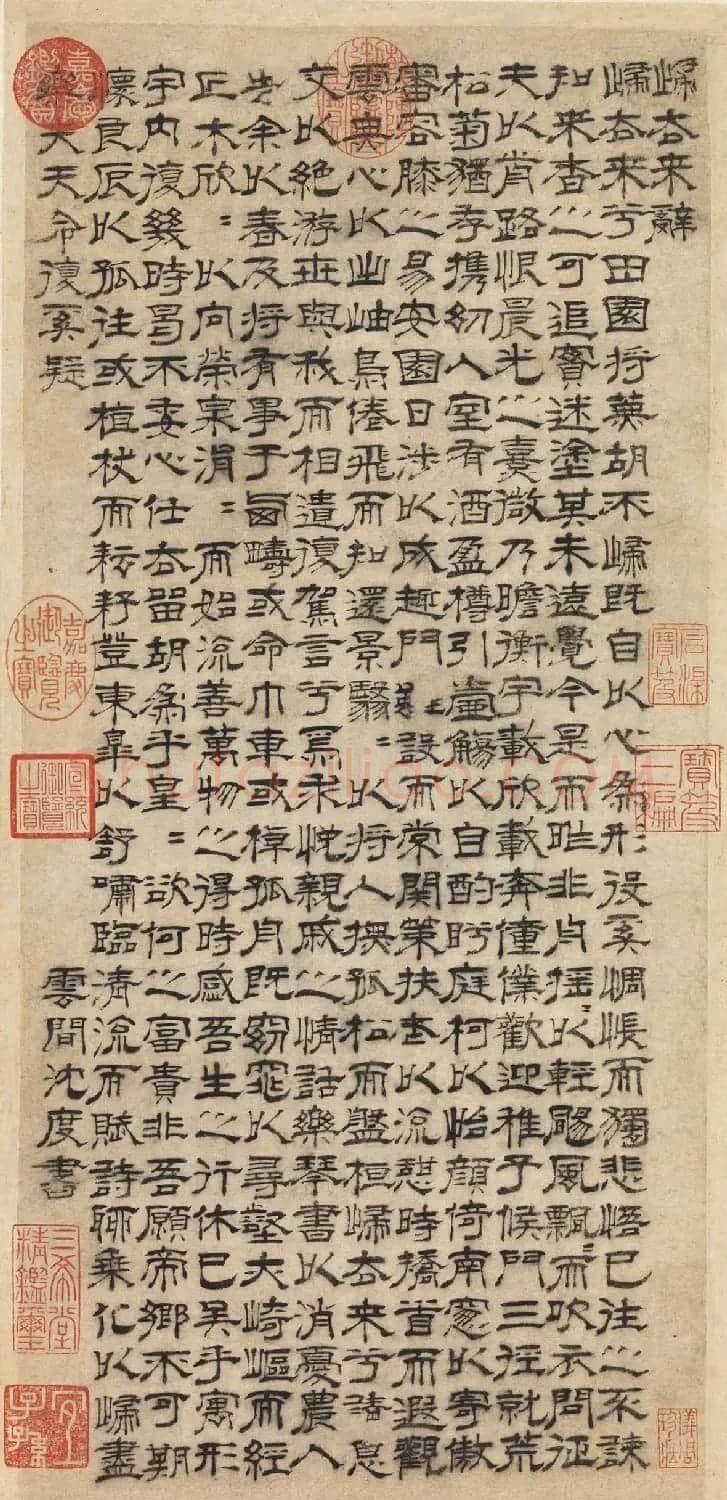 歸去来辭
歸去来兮田園将蕪胡不歸既自以心為形役奚惆悵而獨悲悟已往之不諫
知来者之可追實迷塗其未遠覺今是而昨非舟揺以輕颺風飄〻而吹衣問征
夫以前路恨晨光之熹微乃瞻衡宇載欣載奔僮僕歡迎稚子候門三徑就荒
松菊猶存携幼入室有酒盈樽引壺觴以自酌眄庭柯以怡顔倚南窓以寄傲
審容膝之易安園日涉以成趣門雖設而常関策扶老以流憩時矯首而遐觀
雲無心以出岫鳥倦飛而知還景翳〻以将入撫孤松而盤桓歸去来兮請息
交以絶游世與我而相遺復駕言兮焉求悅親戚之情話樂琴書以消憂農人
告余以春及将有事于西疇或命巾車或棹孤舟既窈窕以尋壑亦崎嶇而經
丘木欣〻以向榮泉涓〻而始流善萬物之得時感吾生之行休已矣乎寓形
宇内復幾時曷不委心任去留胡為乎皇〻欲何之富貴非吾願帝鄉不可期
懷良辰以孤往或植杖而耘耔登東皐以舒嘯臨清流而賦詩聊乗化以歸盡
樂夫天命復奚疑
雲間沈度書
石渠寶笈
寶笈三編
嘉慶鑑賞
嘉慶御覽之寶
宣統御覽之寶
三希堂精鑑璽
宜子孫